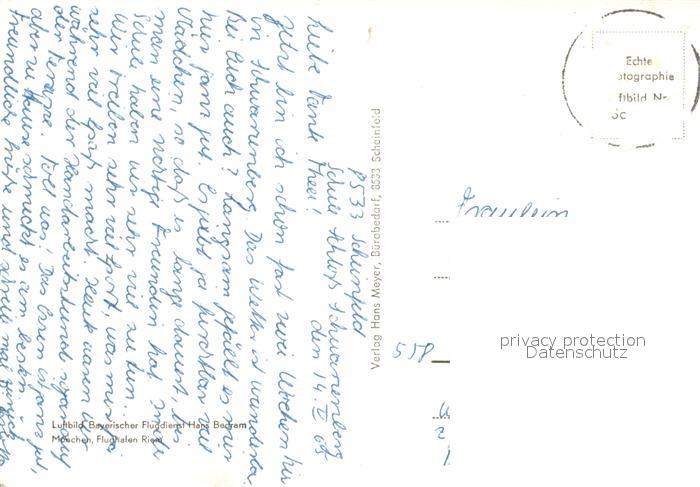 8533 Scheinfeld
Schule Schloß Schwarzenberg
den 14. V 65
Liebe Tante Thea!
Jetzt bin ich schon fast zwei Wochen hier
in Schwarzenberg. Das Wetter ist wunderbar.
Bei Euch auch? Langsam gefällt es mir
hier ganz gut. Es gibt ja furchtbar viel
Mädchen, so daß es lange dauert, bis
man eine richtige Freundin hat. In der
Schule haben wir sehr viel zu tun.
Wir treiben sehr viel Sport, was mir ja
sehr viel Spaß macht. Heute waren wir
während der Handarbeitsstunde sogar auf
der Terasse. Toll was! Das Essen ist ganz gut,
aber zu Hause schmeckt es am besten.
Freundliche Grüße und schreib mal
Luftbild Bayerischer Flugdienst Hans Bertram
München, Flughafen Riem
Verlag Hans Meyer, Bürobedarf, 8533 Scheinfeld
Echte
otographie
ftbild Nr
Fräulein
558
privacy protection
Datenschutz